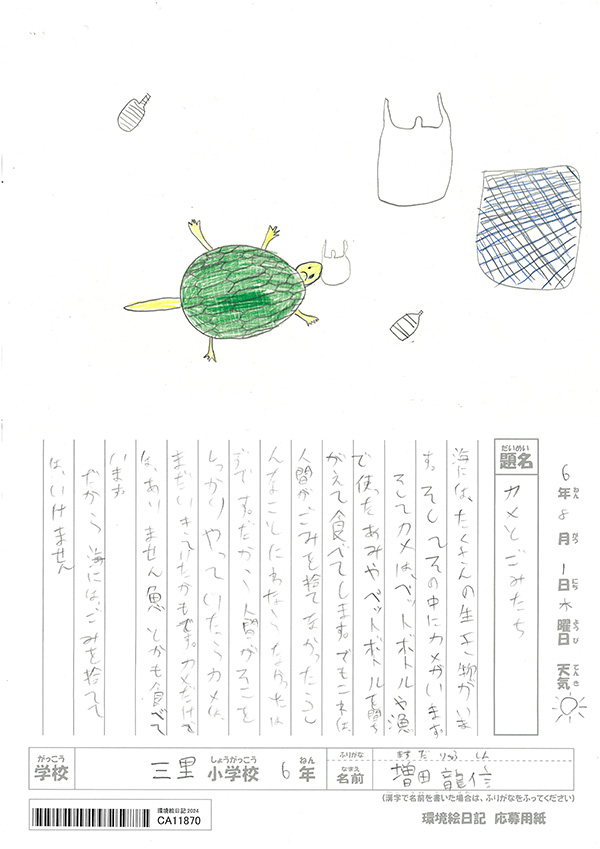 6年8月1日木曜日 天気
ねん がつ にち ようび てんき
だいめい
題名
カメとごみたち
海には、たくさんの生き物がいま
す。そしてその中にカメがいます。
そしてカメは、ペットボトルや漁
で使ったあみやペットボトルを間ち
がえて食べてします。でもこれは、
人間がごみを捨てなかったらこ
んなことにわならなかったは
ずです。だから人間がそこを
しっかりやっていたらカメは、
まだいきてたかもです。カメだけで
は、ありません魚とかも食べて
います
だから海には、ごみを捨てて
は、いけません
がっこう しょうがっこう ねん
学校 三里 小学校 6年
ふりがな ますだ りゅうしん
なまえ
名前 増田 龍信
(漢字で名前を書いた場合は、ふりがなをふってください)
環境絵日記2024
CA11870
環境絵日記 応募用紙